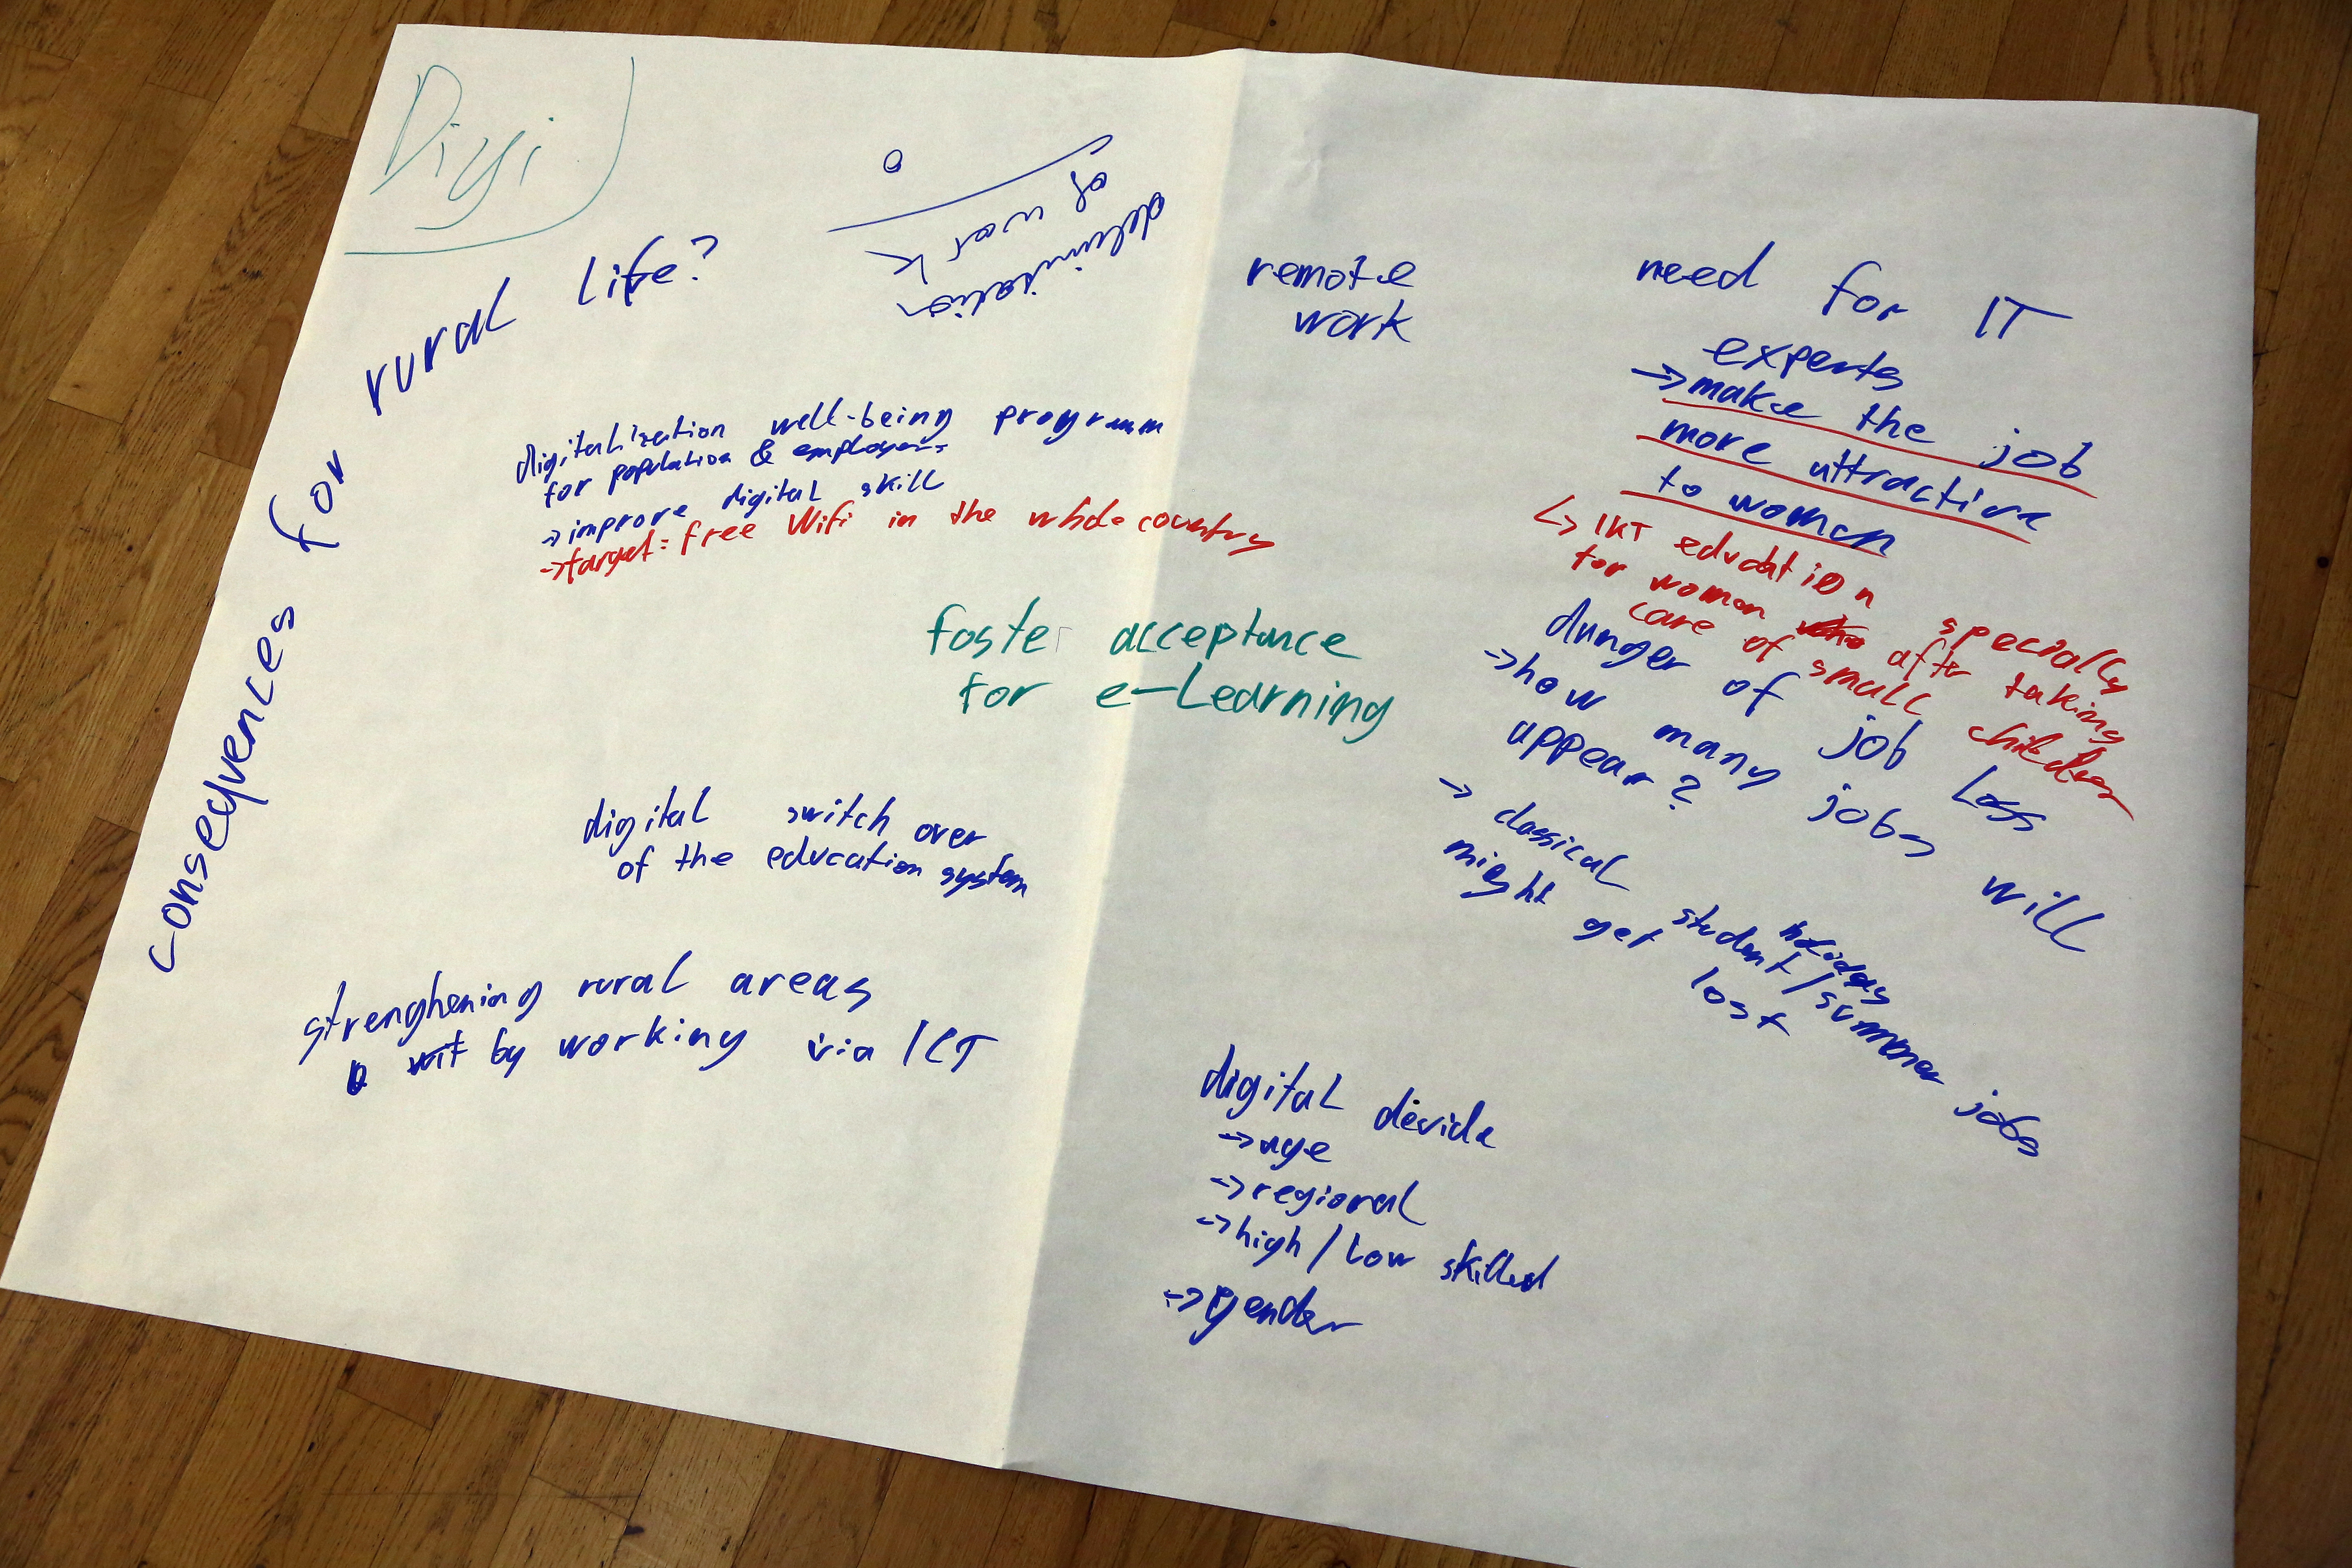 Digi
consequences for rural life?
delimitation
of work
remote
work
need for IT
experts
→ make the job
more attractive
to women
↳ IKT education specially
for women after taking
care of small children
digitalization well-being programm
for population & employers
→ improve digital skill
→ target: free Wifi in the whole country
foster acceptance
for e-Learning
danger of job loss
→ how many jobs will
appear?
→ classical student/holidays/summer jobs
might get lost
digital switch over
of the education system
strenghening rural areas
by working via ICT
digital devide
→ age
→ regional
→ high/low skilled
→ gender